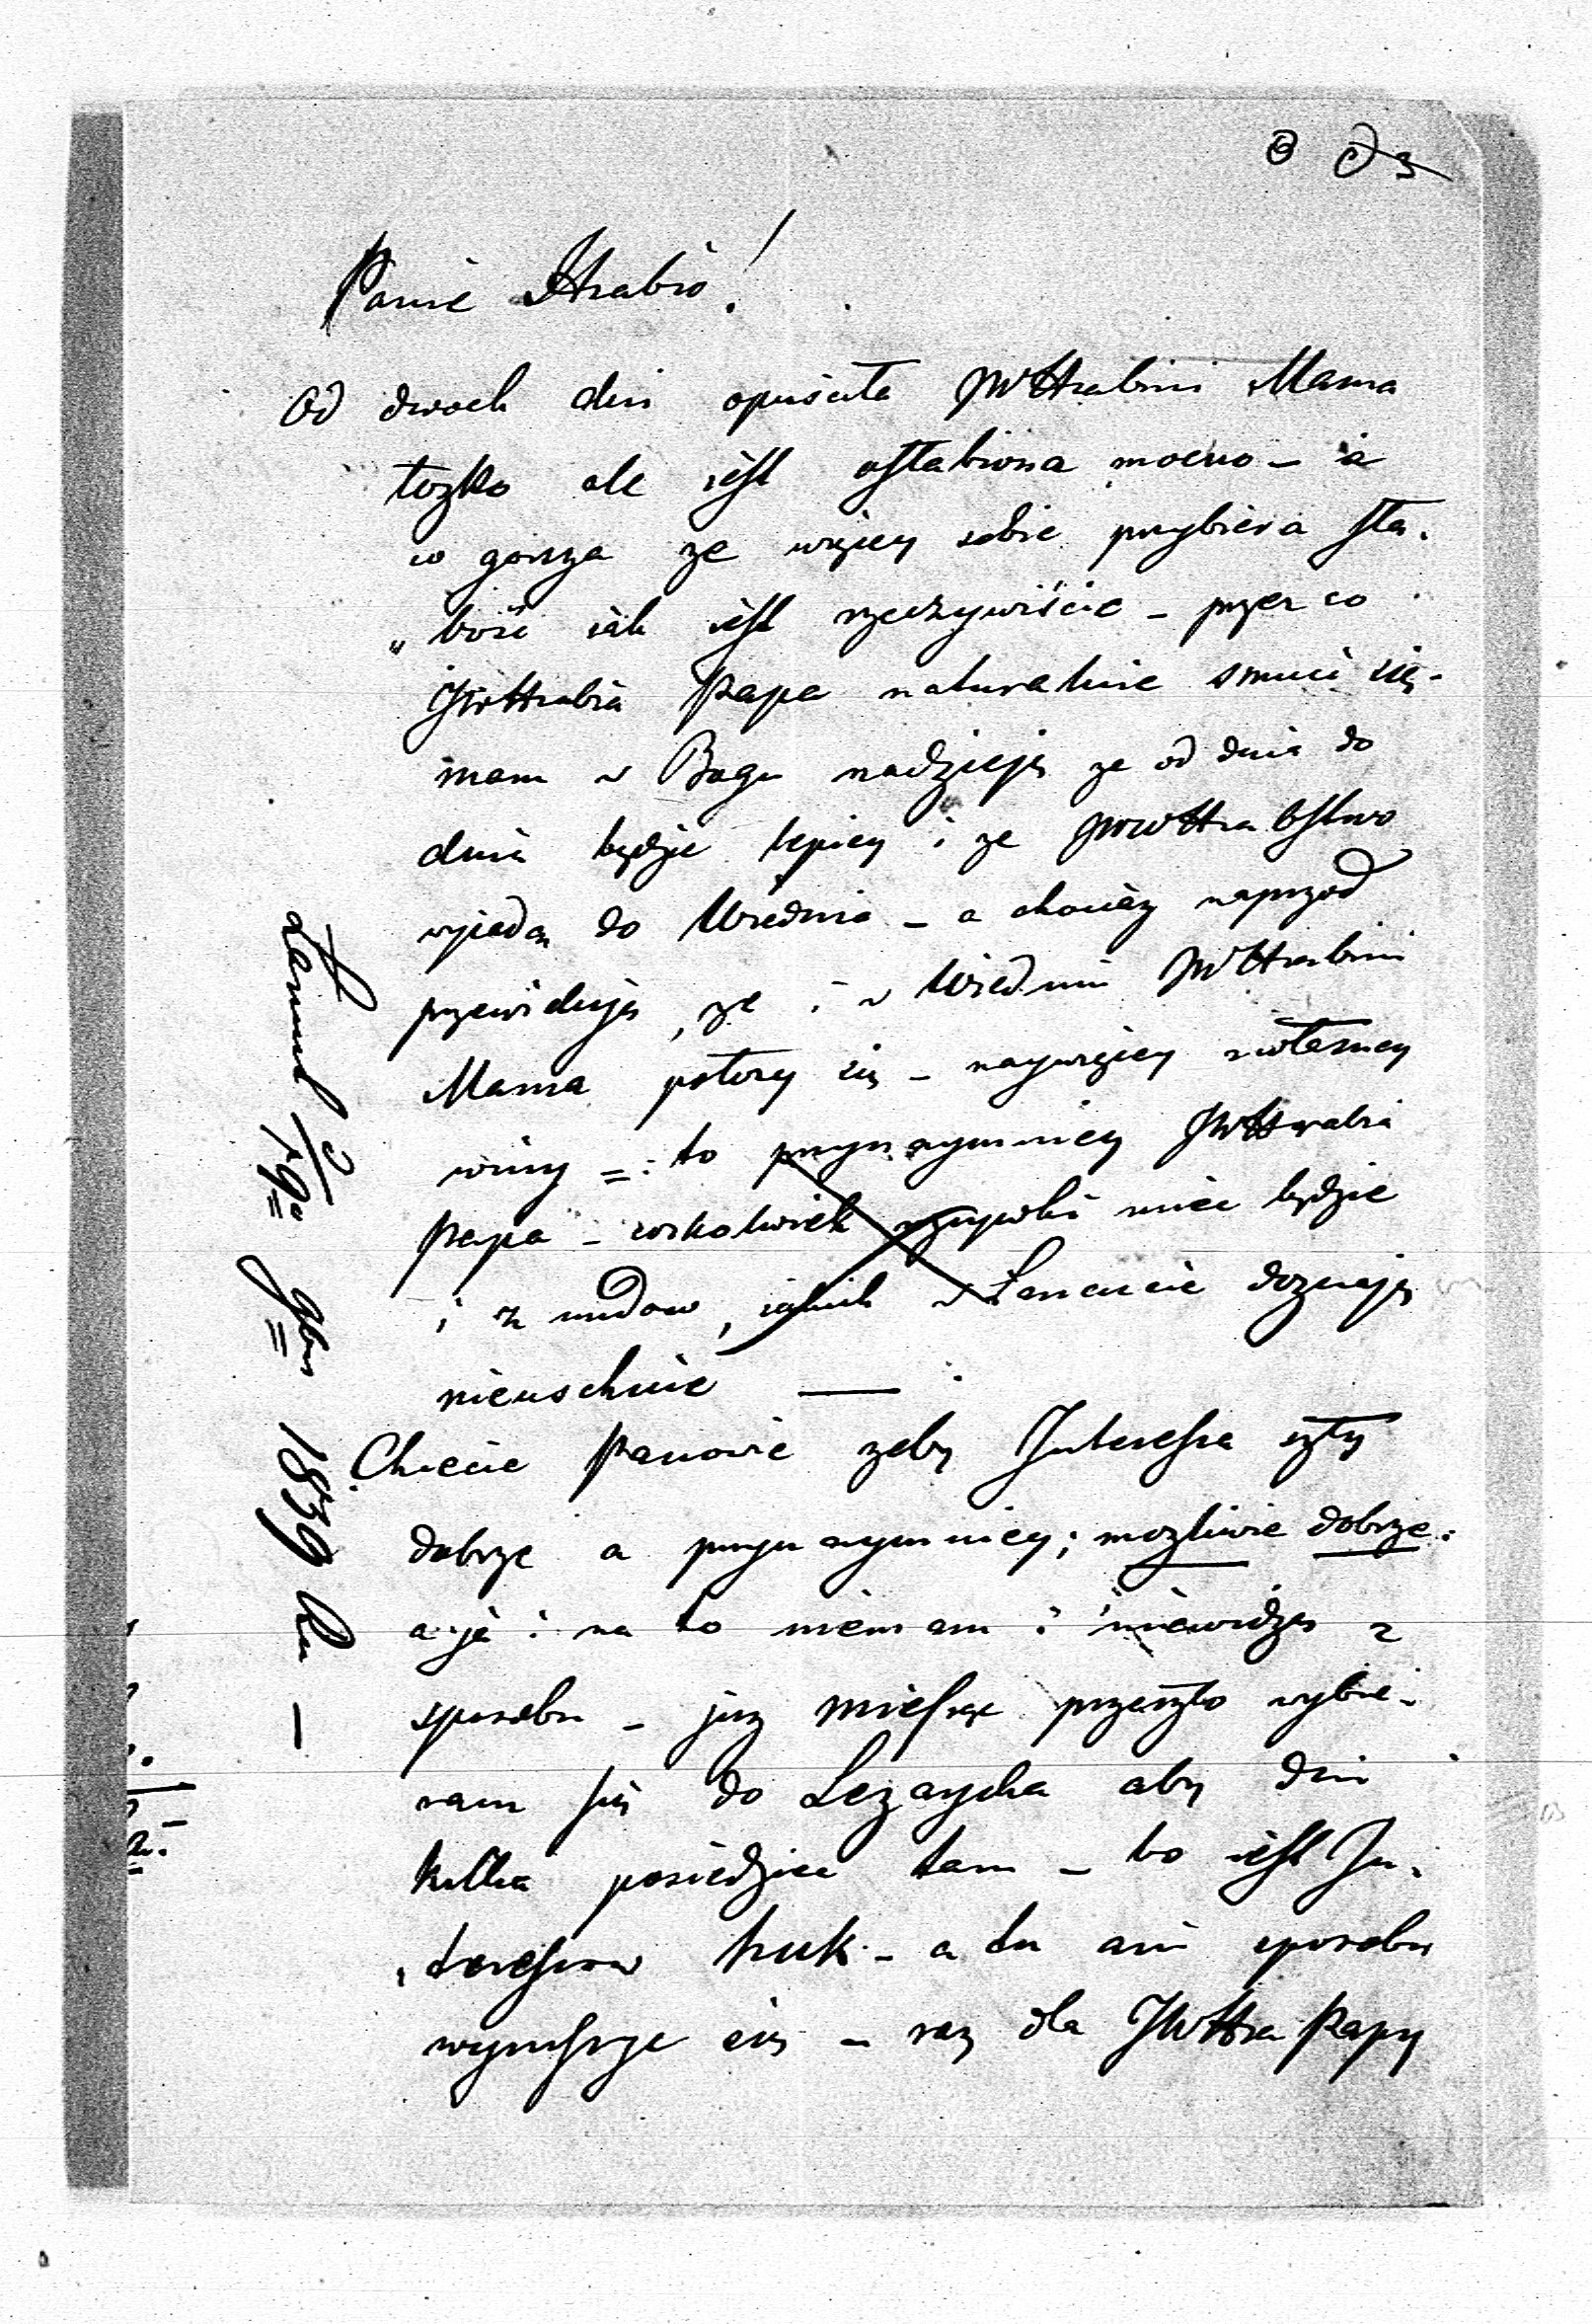 Panie Hrabio!
Od dwoch dni opuściła JWHrabini Mama
łożko ale iest osłabiona mocno – a
co gorsza ze więcey sobie przybiera sła-
„bość iak iest rzeczywiście – przez co
JWHrabia Papa naturalnie smuci się –
mam w Bogu nadzieję ze od dnia do
dnia będzie lepiey i ze JWWHrabstwo
wyiadą do Wiednia – a chociaz naprzod
przewiduję, ze i w Wiedniu JWHrabini
Mama położy się – naywięcey z własney
winy – to przynaymniey JWHrabia
Papa – cokolwiek rozrywki mieć będzie
i z nudow, iakich w Łancucie doznaję
nieuschnie —
Chcecie Panowie zeby Interessa szły
dobrze a przynaymniey; mozliwie dobrze:
a ja i na to niemam i niewidzę
sposobu – juz miesiąc przeszło wybie-
ram się do Lezayska aby dni
kilka posiedzieć tam – bo iest In-
„teressow huk – a tu ani sposobu
wyruszyc się – raz dla JWHra Papy
Łancut 9br 1839 Ru —